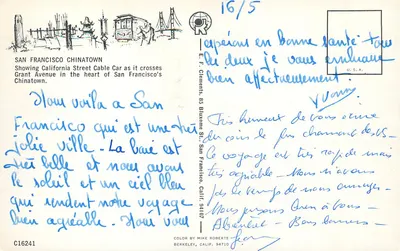 SAN FRANCISCO CHINATOWN
Showing California Street Cable Car as it crosses
Grant Avenue in the heart of San Francisco's
Chinatown.
Nous voila a San
Francisco qui est une très
jolie ville - La baie est
très belle et nous avons
le soleil et un ciel bleu
qui rendent notre voyage
bien agréable. Nous vous
C16241
COLOR BY MIKE ROBERTS
BERKELEY, CALIF. 94710
16/5
espérons en bonne santé tous
les deux je vous embrasse
bien affectueusement.
Yvonne
heureux de vous
du coin le plus charmant des
le voyage est très rapide mais
très agréable - Nous n'avons
pas le temps de nous ennuyer.
Nous pensons bien à vous
Bons baisers
Jean
U.S.A.